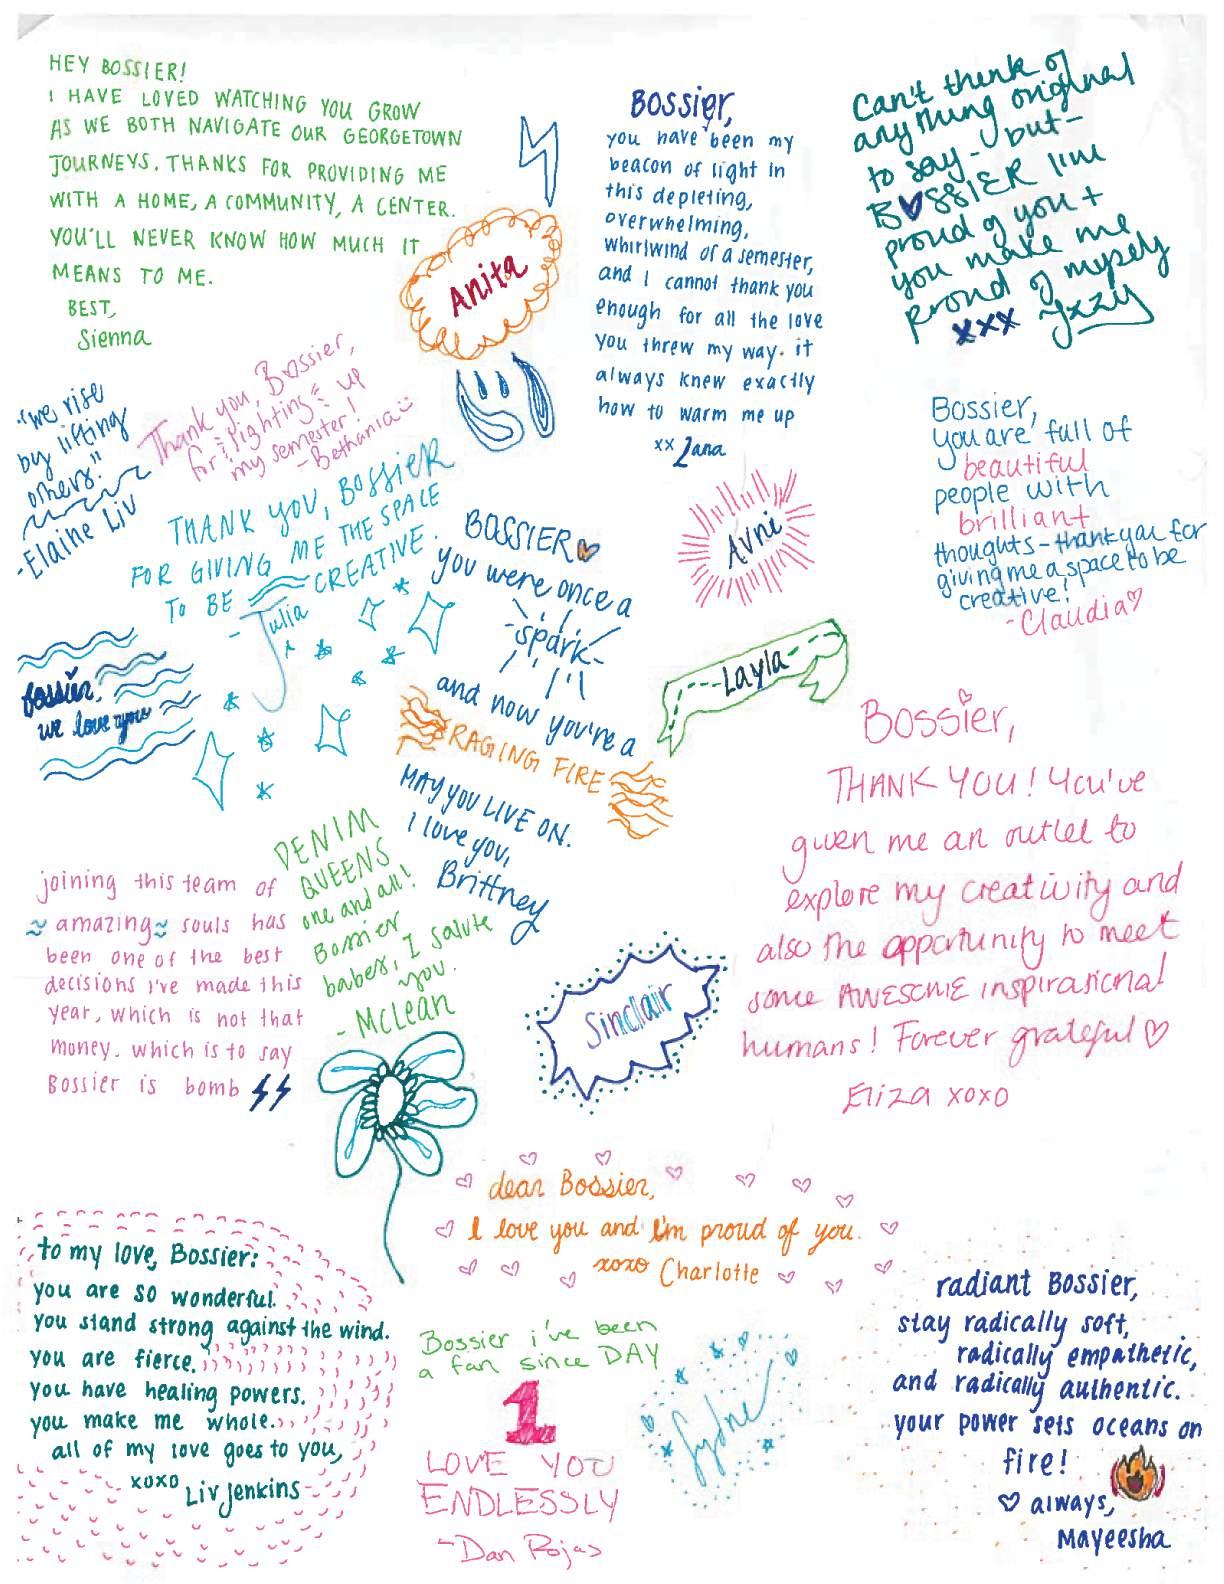 HEY BOSSIER!
I HAVE LOVED WATCHING YOU GROW
AS WE BOTH NAVIGATE OUR GEORGETOWN
JOURNEYS. THANKS FOR PROVIDING ME
WITH A HOME, A COMMUNITY, A CENTER.
YOU'LL NEVER KNOW HOW MUCH IT
MEANS TO ME.
BEST,
Sienna
Anita
Bossier,
you have been my
beacon of light in
this depleting,
overwhelming,
whirlwind of a semester,
and I cannot thank you
enough for all the love
you threw my way. it
always knew exactly
how to warm me up
xx Lana
Can't think of
anything original
to say - but -
BOSSIER I'm
proud of you +
you make me
proud of myself
xxx Izzy
"we rise
by lifting
others."
-Elaine Liv
Thank you, Bossier,
for lighting up
my semester!
-Bethania
THANK YOU, BOSSIER
FOR GIVING ME THE SPACE
TO BE CREATIVE.
- Julia
BOSSIER
you were once a
spark
and now you're a
RAGING FIRE
MAY YOU LIVE ON.
I love you,
Brittney
Avni
Bossier,
you are full of
beautiful
people with
brilliant
thoughts - thank you for
giving me a space to be
creative!
-Claudia
Bossier,
we love you
Layla
Bossier,
THANK YOU! You've
given me an outlet to
explore my creativity and
also the opportunity to meet
some AWESOME inspirational
humans! Forever grateful
Eliza xoxo
DENIM
QUEENS
one and all!
Bossier
babes, I salute
you.
- McLean
joining this team of
≈ amazing ≈ souls has
been one of the best
decisions i've made this
year, which is not that
money. which is to say
Bossier is bomb
Sinclair
dear Bossier,
I love you and I'm proud of you.
xoxo Charlotte
to my love, Bossier:
you are so wonderful.
you stand strong against the wind.
you are fierce.
you have healing powers.
you make me whole.
all of my love goes to you,
xoxo Liv Jenkins
Bossier i've been
a fan since DAY
1
LOVE YOU
ENDLESSLY
-Dan Rojas
radiant Bossier,
stay radically soft,
radically empathetic,
and radically authentic.
your power sets oceans on
fire!
always,
Mayeesha